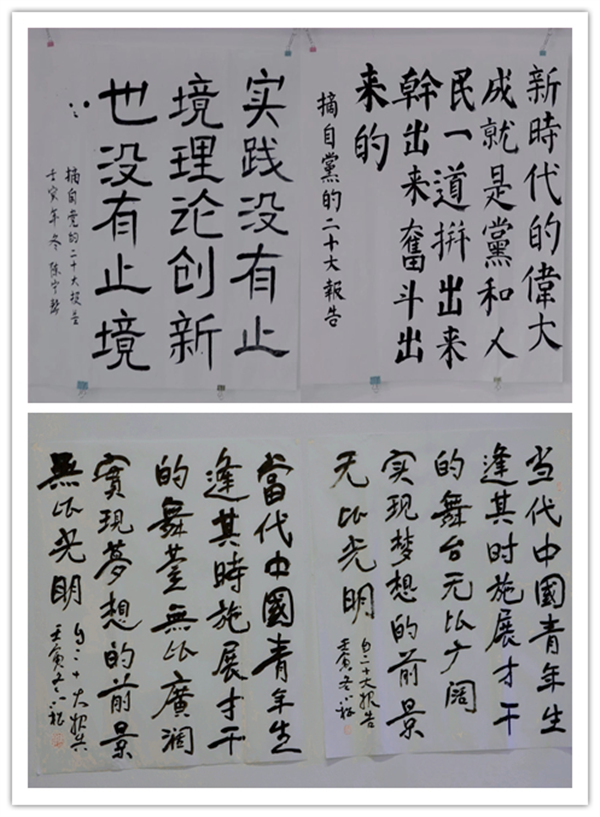 新時代的偉大
成就是黨和人
民一道拼出来
幹出来奮斗出
来的
摘自黨的二十大報告
实践没有止
境理论创新
也没有止境
摘自党的二十大报告
壬寅年冬陈宇
当代中國青年生
逢其时施展才干
的舞台无比广阔
实现梦想的前景
无比光明
自二十大报告
壬寅冬
當代中國青年生
逢其時施展才干
的舞臺無比廣阔
實現夢想的前景
無比光明
自二十大报告
壬寅冬